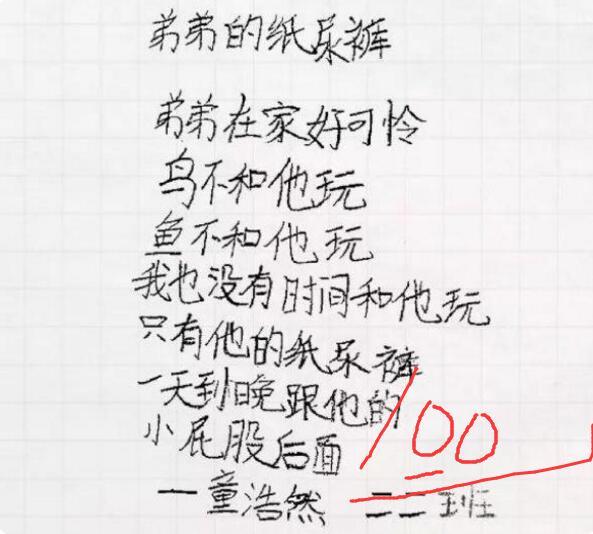 弟弟的纸尿裤
弟弟在家好可怜
鸟不和他玩
鱼不和他玩
我也没有时间和他玩
只有他的纸尿裤
一天到晚跟他的
小屁股后面
100
一童浩然 二二班